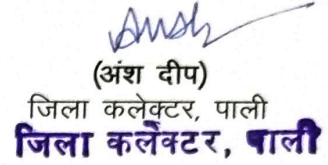 Ansh
(अंश दीप)
जिला कलेक्टर, पाली
जिला कलेक्टर, पाली